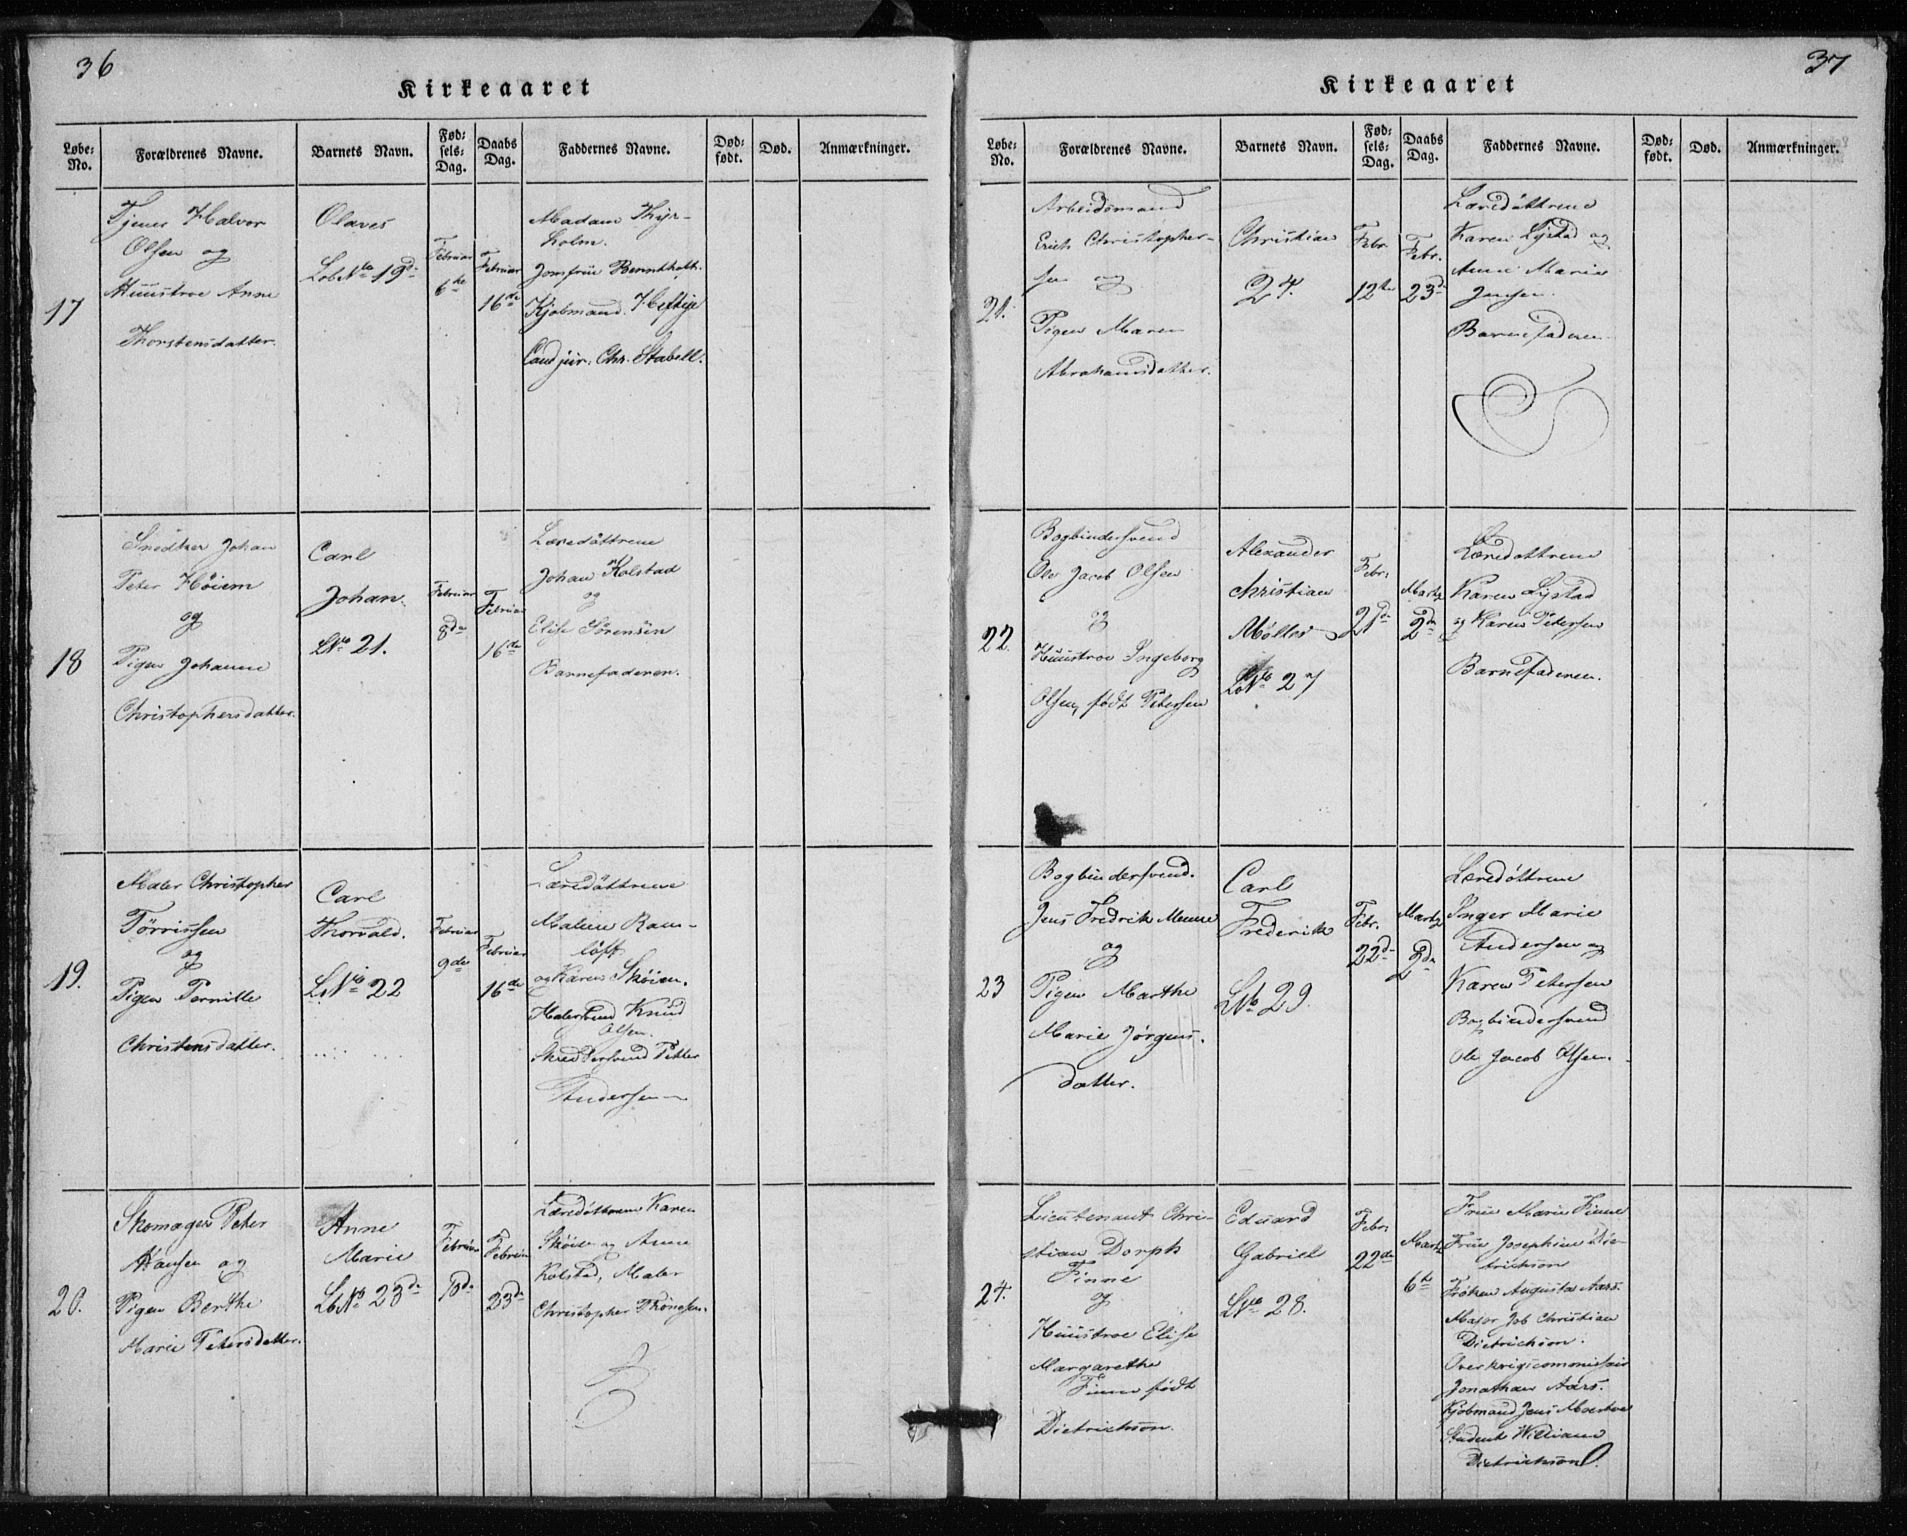 36
Kirkeaaret
Løbe:
No.
Forældrenes Navne.
Barnets Navn.
Fød:
sels:
Dag.
Daabs
Dag.
Faddernes Navne.
Død:
født.
Død.
Anmærkninger.
17
Tjener Halvor
Olsen og
Huustroe Anne
Thorstensdatter.
Olaves
LobeNo 19de
Februar
6te
Februar
16de
Madam Thyr-
holm.
Jomfrue
Kjøbmand Heftye
Cand jur. Chr. Stabell.
18
Snedker Johan
Peter Höiem
og
Pigen Johanne
Christophersdatter.
Carl
Johan.
LNo 21.
Februar
8de
Februar
16de
Læredöttrene
Johan Kolstad
og
Elise Sörensen
Barnefaderen.
19.
Maler Christopher
Törrissen
og
Pigen Pernille
Christensdatter.
Carl
Thorvald.
L.No 22
Februar
9de
Februar
16de
Læredöttrene
Malene Ram-
löff
og Karen Sköien.
Malersvend Knud
Olsen.
Skreddersvend Petter
Andersen
20.
Skomager Peter
Hansen og
Pigen Berthe
Marie Petersdatter.
Anne
Marie
LbNo 23de
Februar
10de
Februar
23de
Læredöttrene Karen
Sköien og Anne
Kolstad, Maler
Christopher Thönesen.
37
Kirkeaaret
Løbe:
No.
Forældrenes Navne.
Barnets Navn.
Fød:
sels:
Dag.
Daabs
Dag.
Faddernes Navne.
Død:
født.
Død.
Anmærkninger.
21.
Arbeidsmand
Erich Christopher-
sen og
Pigen Maren
Abrahamsdatter.
Christian
24.
Febr.
12te
Febr.
23de
Læredöttrene
Karen Lystad og
Anne Marie
Jensen.
Barnefaderen
22.
Bogbindersvend
Ole Jacob Olsen
og
Huustroe Ingeborg
Olsen, født Petersen
Alexander
Christian
Möller
LNo 27
Febr.
21de
Martz
2de
Læredöttrene
Karen Lystad
og Karen Petersen
Barnefaderen.
23
Bogbindersvend.
Jens Fredrik Menne
og
Pigen Marthe
Marie Jörgens-
datter.
Carl
Frederik
LNo 29.
Febr.
22de
Martz
2de
Læredöttrene
Inger Marie
Andersen og
Karen Petersen
Bogbindersvend
Ole Jacob Olsen.
24.
Lieutenant Chri-
stian Dorph
Finne
og
Huustroe Elise
Margarethe
Finne født
Dietrichson.
Eduard
Gabriel
LNo 28.
Febr.
22de
Martz
6te
Frue Marie Finne
Frue Josephine Die-
trichson
Fröken Augusta Aars.
Major Job Christian
Dietrichson.
Overkrigscommissair
Jonathan Aars.
Kjøbmand Jens Moestue
Student William
Dietrichson.